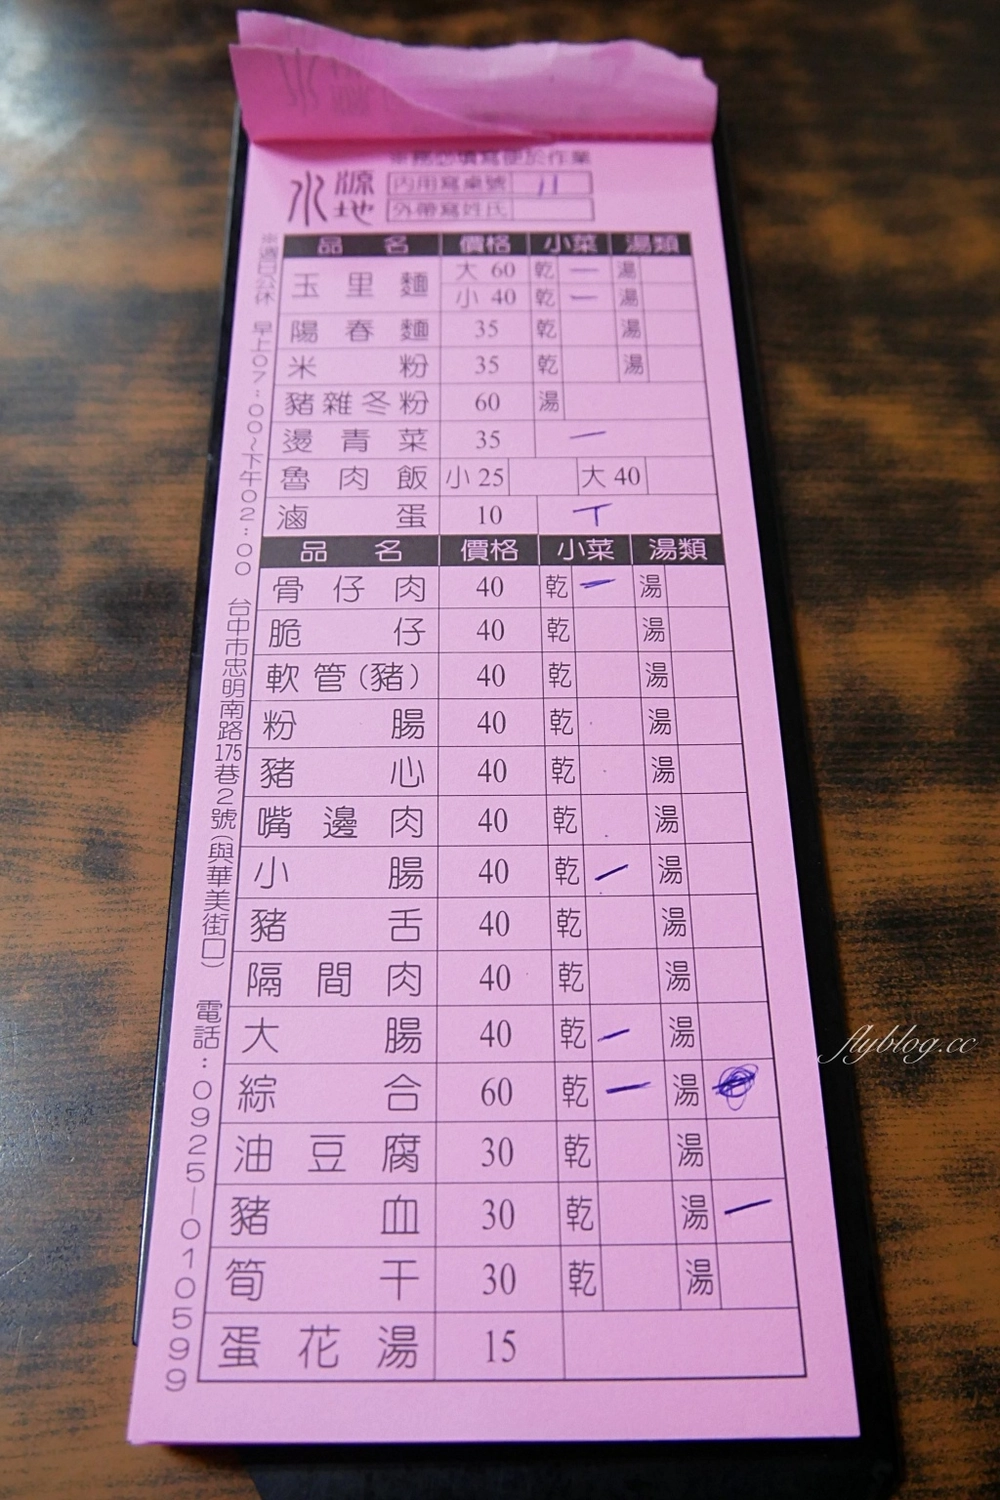 ※務必填寫便於作業
水源地
內用寫桌號 11
外帶寫姓氏
品名 價格 小菜 湯類
玉里麵 大 60 乾 一 湯
小 40 乾 一 湯
陽春麵 35 乾 湯
米粉 35 乾 湯
豬雜冬粉 60 湯
燙青菜 35 一
魯肉飯 小 25 大 40
滷蛋 10 丅
品名 價格 小菜 湯類
骨仔肉 40 乾 一 湯
脆仔 40 乾 湯
軟管(豬) 40 乾 湯
粉腸 40 乾 湯
豬心 40 乾 湯
嘴邊肉 40 乾 湯
小腸 40 乾 一 湯
豬舌 40 乾 湯
隔間肉 40 乾 湯
大腸 40 乾 一 湯
綜合 60 乾 一 湯
油豆腐 30 乾 湯
豬血 30 乾 湯 一
筍干 30 乾 湯
蛋花湯 15
※週日公休 早上07:00~下午02:00 台中市忠明南路175巷2號(與華美街口) 電話:0925-010599
flyblog.cc